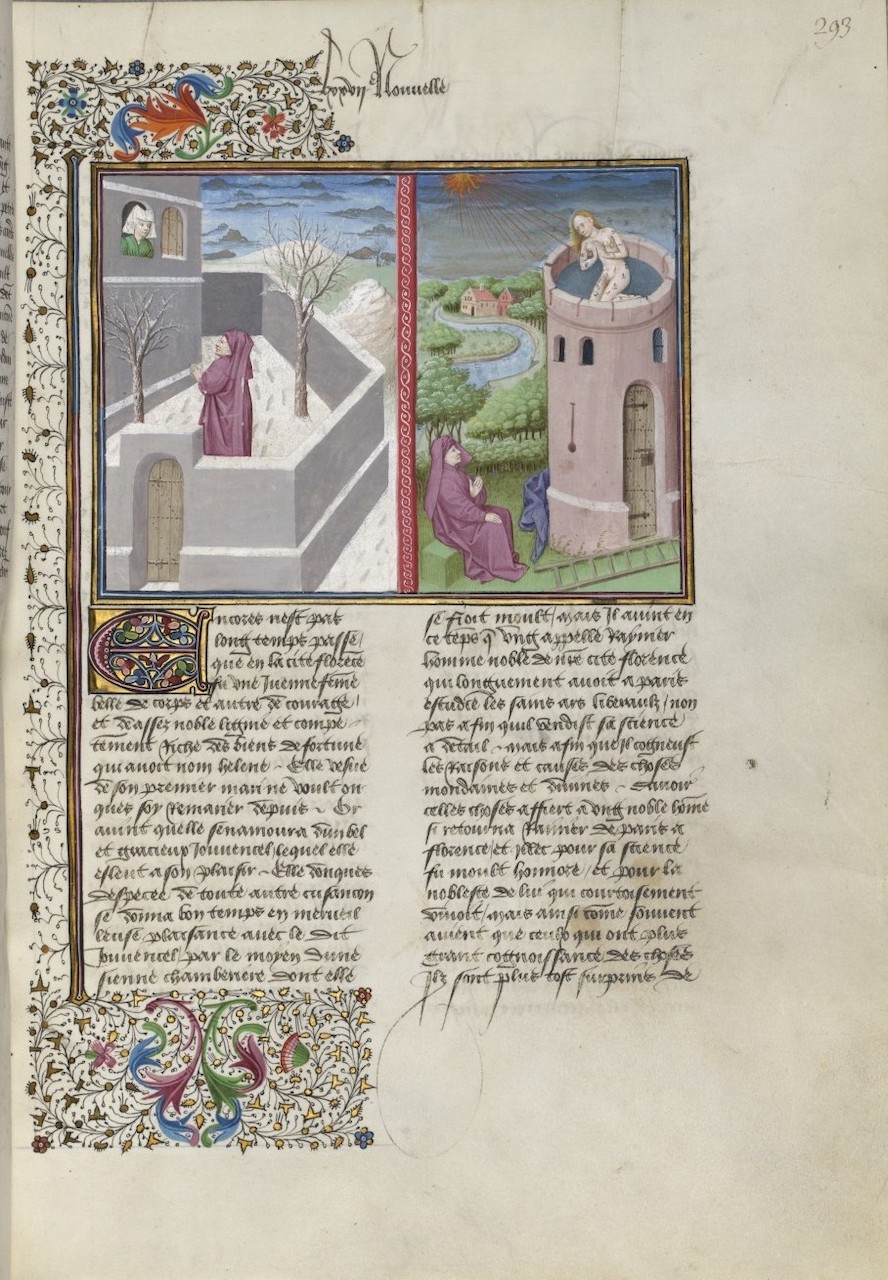 293
lxxvii Nouuelle
Encores nest pas
long temps passe
que en la cite florēce
fu vne Juenne fēme
belle de corps et autre de couraige
et dassez noble ligne et compe
temment riche des biens de fortune
qui auoit nom helene Elle vesue
de son premier mari ne voult on
ques soy remarier depuis Or
auint quelle senamoura dun bel
et gracieux Jouuencel lequel elle
eslent a son plaisir Elle donques
despeceee de toute autre cusancon
se donna bon temps en merueil
leuse plaisance auec le dit
Jouuencel par le moyen dune
sienne chamberiere dont elle
se fioit moult mais Il auint en
ce tēps q̄ vng appelle Raynier
homme noble de nr̄e cite florence
qui longuement auoit a paris
estudie les sains ars liberaulx non
pas afin quil vendist sa science
a detail mais afin que Il cogneust
les raisons et causes des choses
mondaines et diuines Sauoir
celles choses affiert a vng noble hōme
si retourna Ranier de paris a
florence et Illec pour sa science
fu moult honnore et pour la
noblesse de lui qui courtoisement
viuoit mais ainsi cōme souuent
auient que ceulx qui ont plus
grant cognoissance des choses
Ilz sont plus tost surprins de